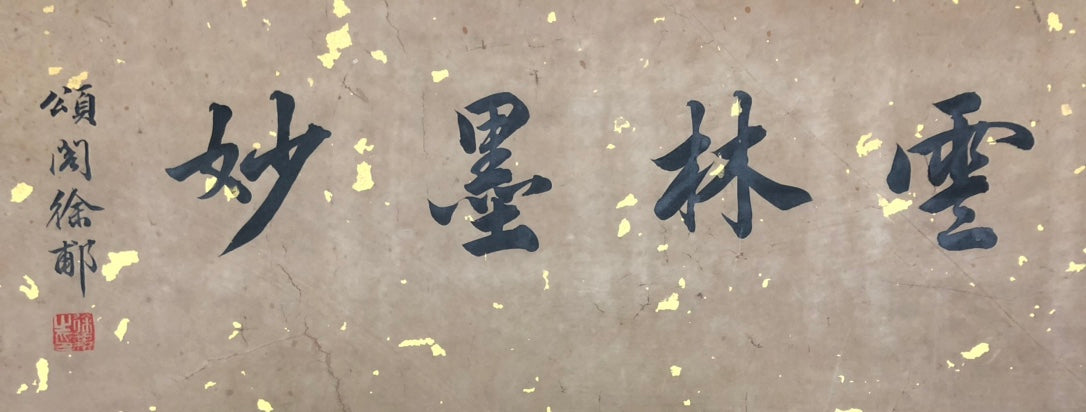 雲林墨妙
頌閣徐郙